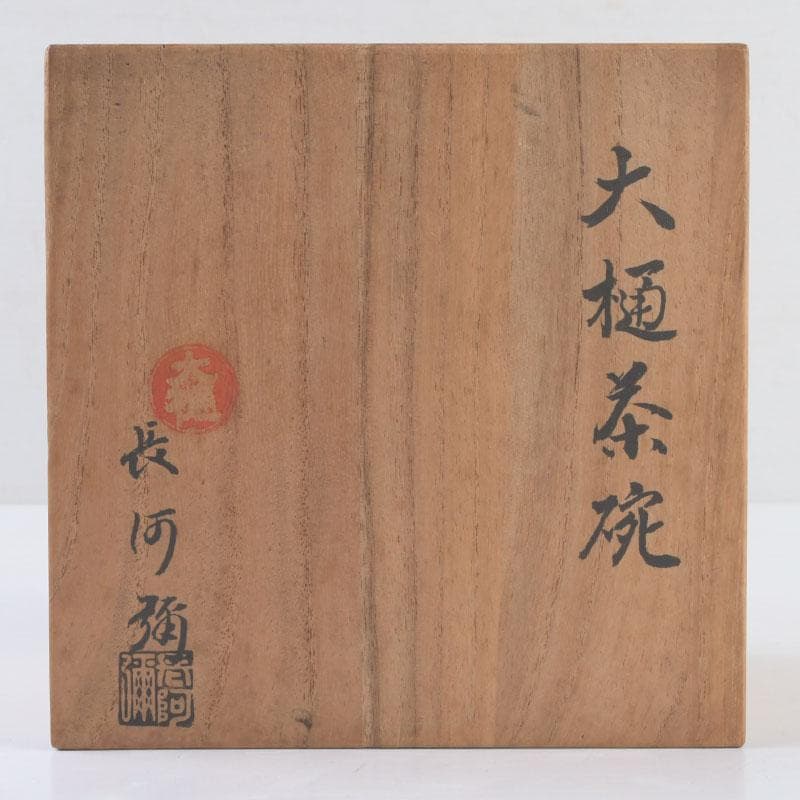 大樋茶碗
大樋
長阿彌
長阿彌